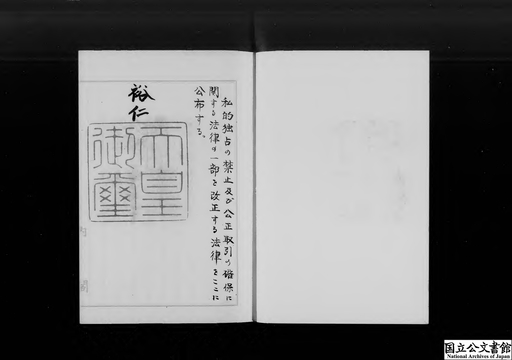 私的独占の禁止及び公正取引の確保に
関する法律の一部を改正する法律をここに
公布する。
裕仁
天皇
御璽
国立公文書館
National Archives of Japan